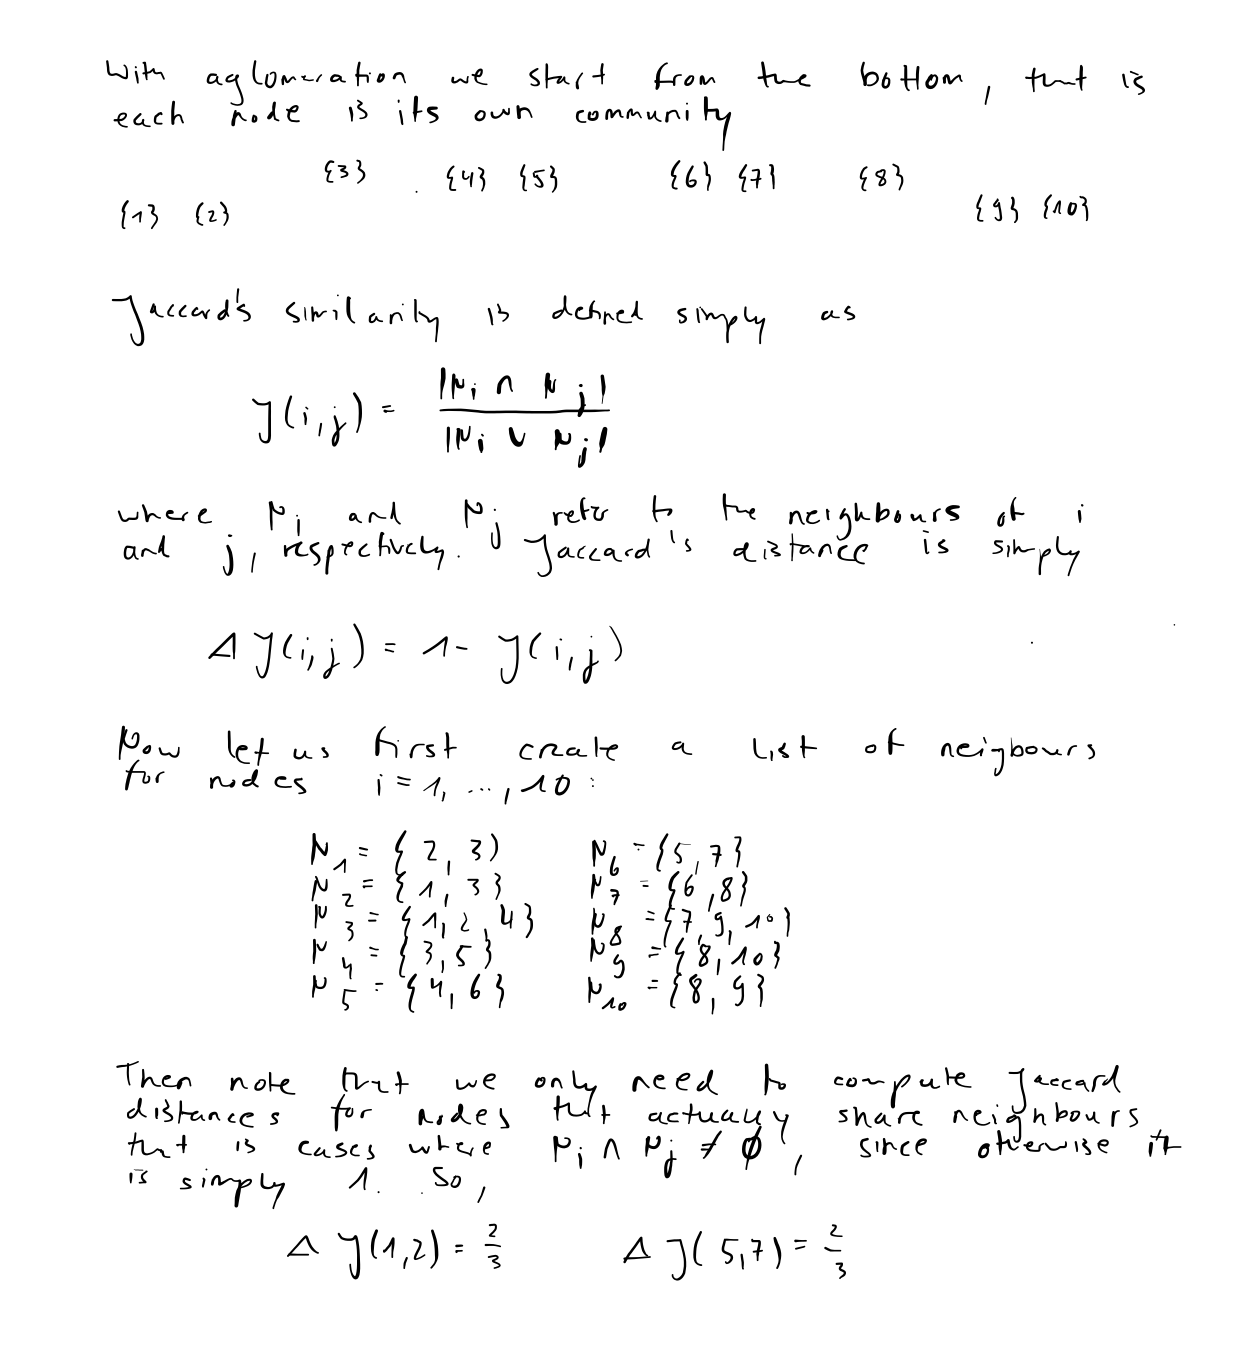 With aglomeration we start from the bottom, that is
each node is its own community
{3} {4} {5} {6} {7} {8}
{1} {2} {9} {10}
Jaccard's similarity is defined simply as
J(i,j) = |Ni ∩ Nj| / |Ni ∪ Nj|
where Ni and Nj refer to the neighbours of i
and j, respectively. Jaccard's distance is simply
Δ J(i,j) = 1 - J(i,j)
Now let us first create a list of neigbours
for nodes i = 1, ..., 10 :
N1 = { 2, 3} N6 = {5, 7}
N2 = { 1, 3} N7 = {6, 8}
N3 = {1, 2, 4} N8 = {7, 9, 10}
N4 = {3, 5} N9 = {8, 10}
N5 = {4, 6} N10 = {8, 9}
Then note that we only need to compute Jaccard
distances for nodes that actually share neighbours
that is cases where Ni ∩ Nj ≠ ∅, since otherwise it
is simply 1. So,
Δ J(1,2) = 2/3 Δ J(5,7) = 2/3